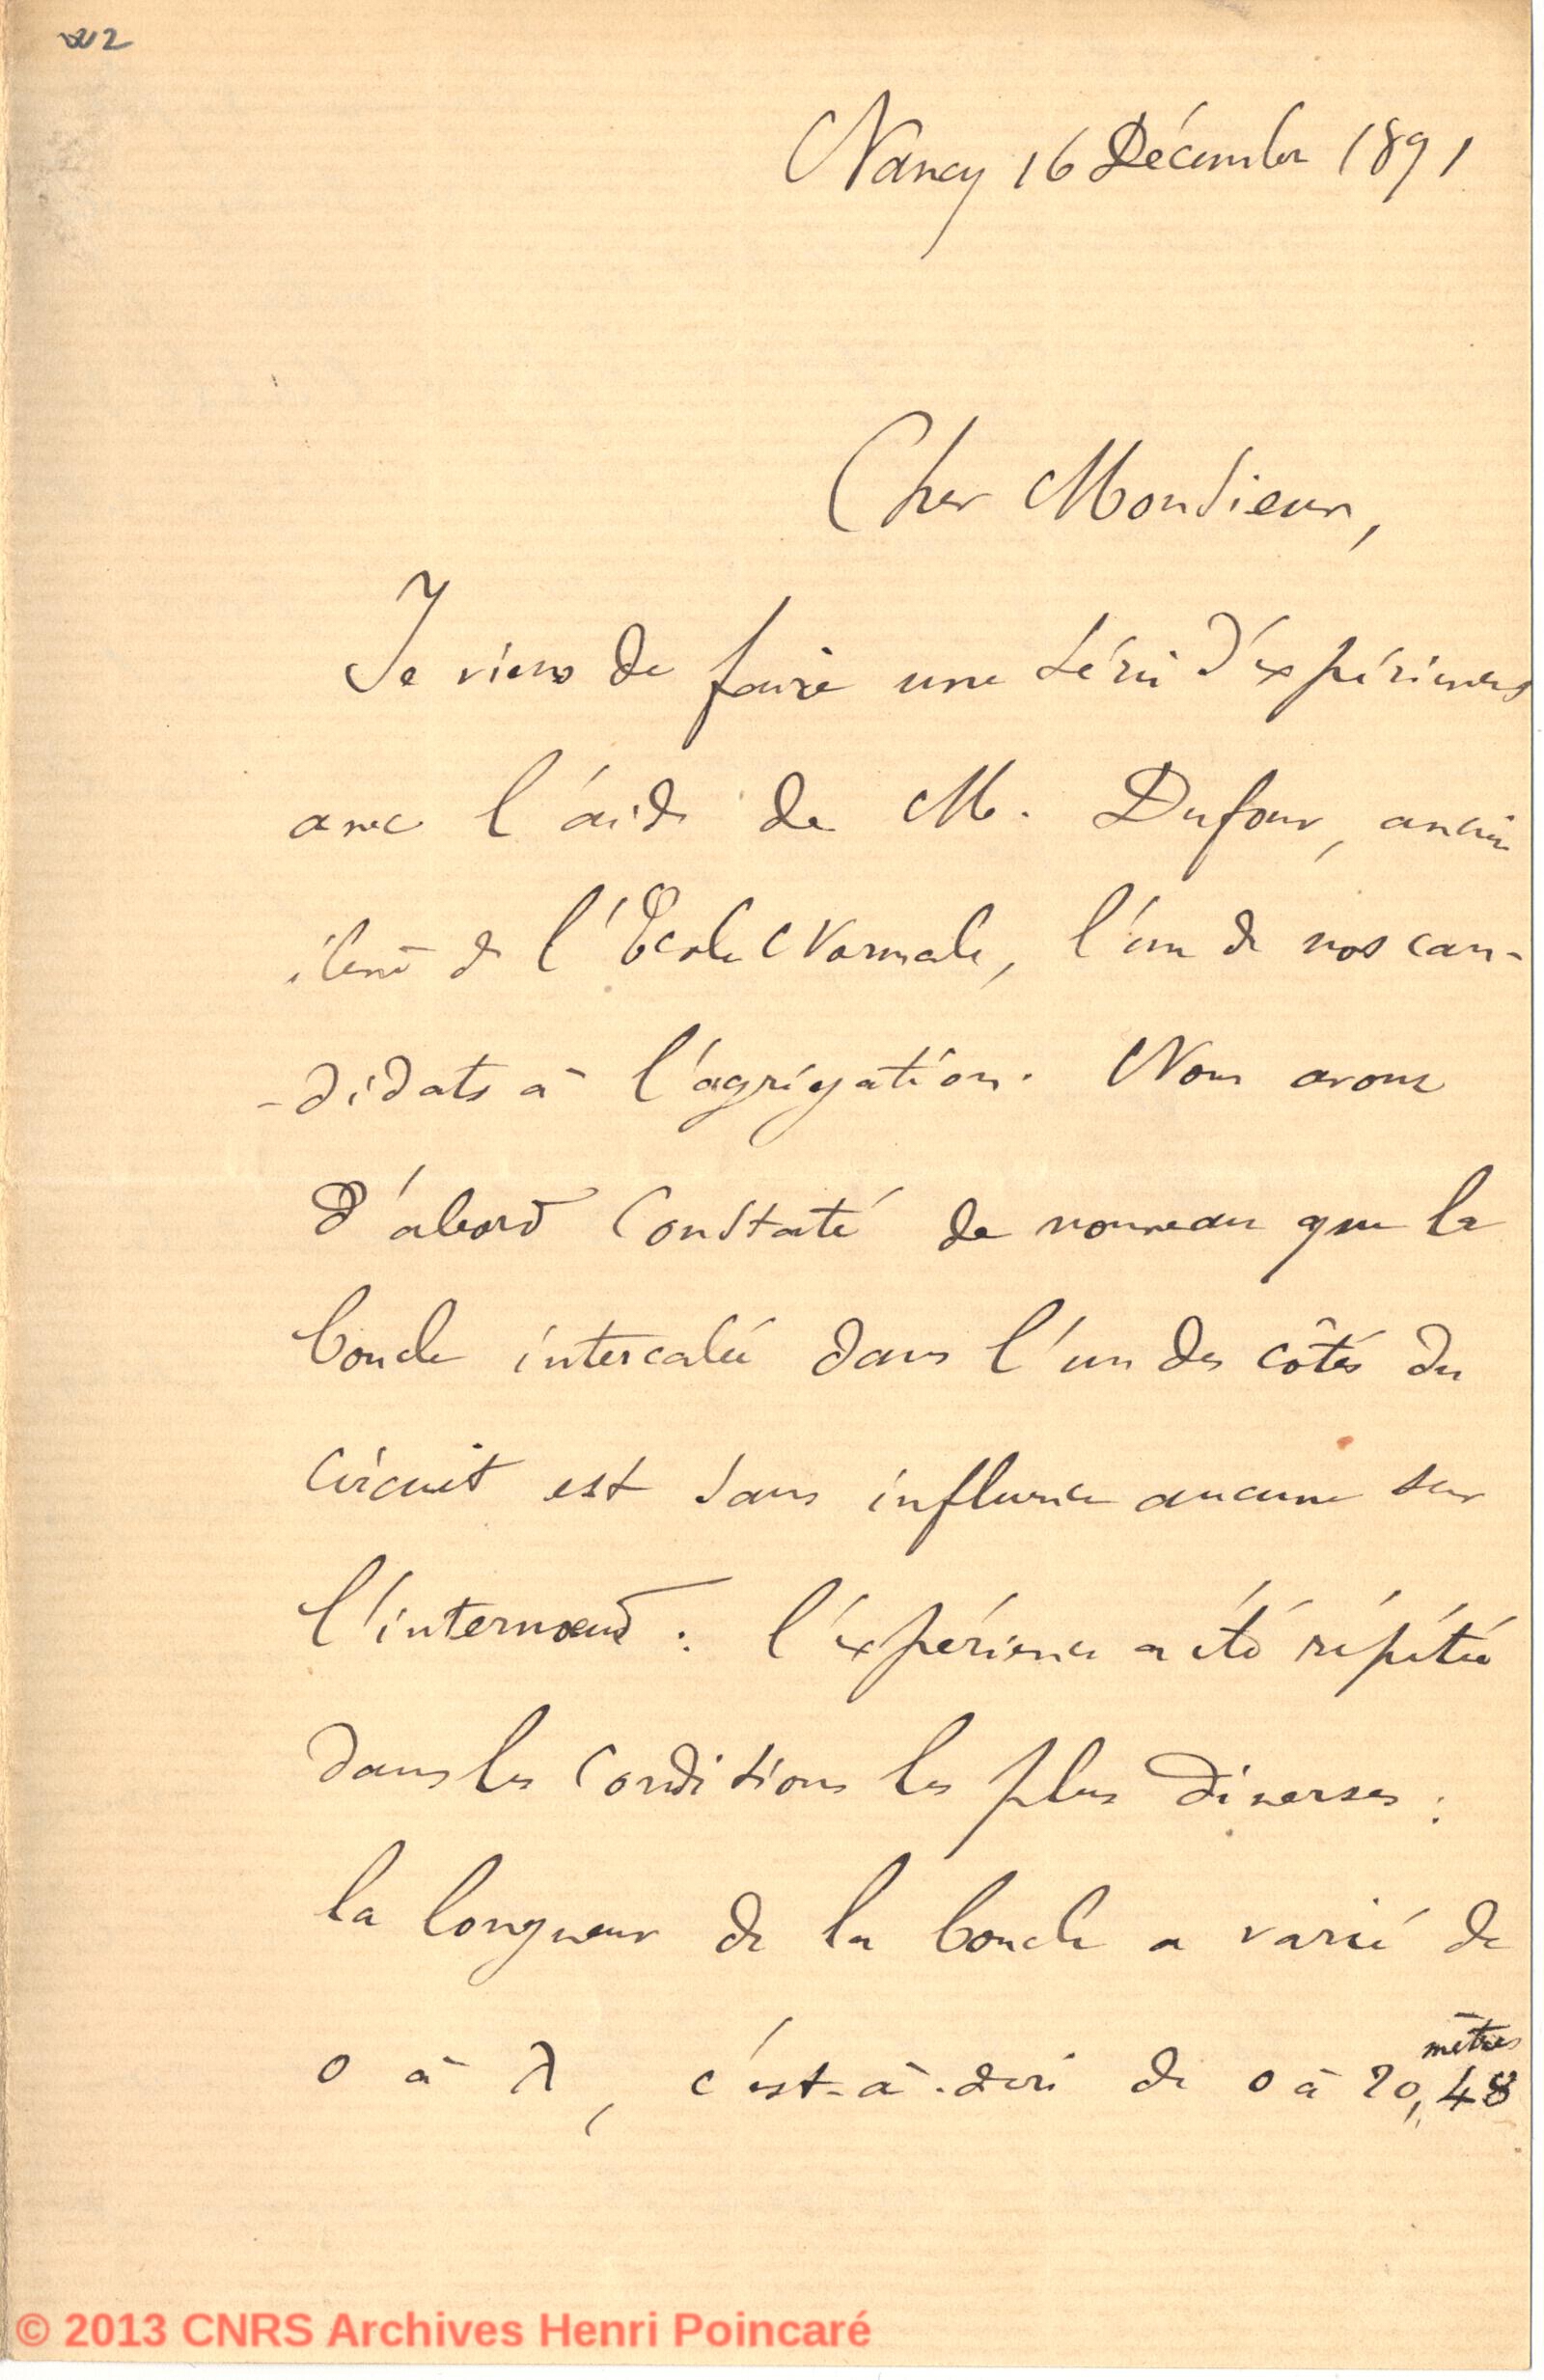 Nancy 16 Décembre 1891
Cher Monsieur,
Je viens de faire une série d'expériences
avec l'aide de M. Dufour, ancien
élève de l'Ecole Normale, l'un de nos can-
-didats à l'agrégation. Nous avons
d'abord constaté de nouveau que la
boucle intercalée dans l'un des côtés du
circuit est sans influence aucune sur
l'internœud : l'expérience a été répétée
dans les conditions les plus diverses :
la longueur de la boucle a varié de
0 à λ, c'est-à-dire de 0 à 20,48 mètres
© 2013 CNRS Archives Henri Poincaré